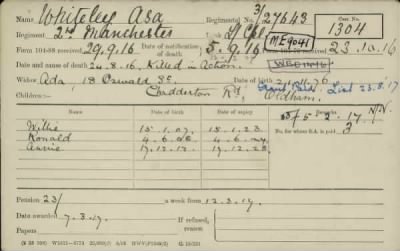 Name Whiteley Asa Regimental No. 3/27643 Case No. 1304
Regiment 2nd Manchester Rank L/Cpl ME9041
Form 101-88 received 29.9.16 Date of notification of death 5.9.16 Form 104-76 received 23.10.16
Date and cause of death 24.8.16, Killed in Action.
Widow Ada, 18 Oswald St. Date of birth
Children:— Chadderton Rd, Oldham.
Name Date of birth Date of expiry 15/- 5. 2. 17.
No. for whom S.A. is paid 3
Willie 15.1.07. 15.1.23.
Ronald
Annie 17.12.12. 17.12.28.
Pension 23/ a week from 12.3.17.
Date awarded 7.3.17. If refused, reason
Papers